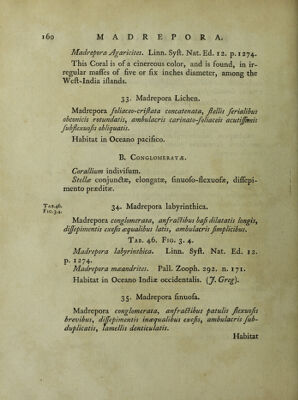 160 MADREPORA.
Madrepora Agaricites. Linn. Syſt. Nat. Ed. 12. p. 1274.
This Coral is of a cinereous color, and is found, in ir-
regular maſſes of five or ſix inches diameter, among the
Weſt-India iſlands.
33. Madrepora Lichen.
Madrepora foliaceo-criſtata concatenata, ſtellis ſerialibus
obconicis rotundatis, ambulacris carinato-foliaceis acutiſſimis
ſubflexuoſis obliquatis.
Habitat in Oceano pacifico.
B. CONGLOMERATÆ.
Corallium indiviſum.
Stellæ conjunctæ, elongatæ, ſinuoſo-flexuoſæ, diſſepi-
mento præditæ.
TAB.46.
FIG.3.4.
34. Madrepora labyrinthica.
Madrepora conglomerata, anfractibus baſi dilatatis longis,
diſſepimentis exeſis æqualibus latis, ambulacris ſimplicibus.
TAB. 46. FIG. 3. 4.
Madrepora labyrinthica. Linn. Syſt. Nat. Ed. 12.
p. 1274.
Madrepora mæandrites. Pall. Zooph. 292. n. 171.
Habitat in Oceano Indiæ occidentalis. (J. Greg).
35. Madrepora ſinuoſa.
Madrepora conglomerata, anfractibus patulis flexuoſis
brevibus, diſſepimentis inæqualibus exeſis, ambulacris ſub-
duplicatis, lamellis denticulatis.
Habitat